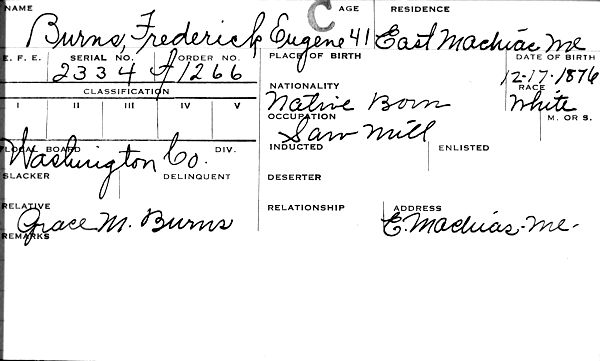 NAME C AGE RESIDENCE
Burns, Frederick Eugene 41 East Machias Me
E. F. E. SERIAL NO. ORDER NO. PLACE OF BIRTH DATE OF BIRTH
2334 A1266 12-17-1876
CLASSIFICATION NATIONALITY RACE
I II III IV V Native Born White
OCCUPATION M. OR S.
Saw Mill
LOCAL BOARD DIV. INDUCTED ENLISTED
Washington Co.
SLACKER DELINQUENT DESERTER
RELATIVE RELATIONSHIP ADDRESS
Grace M. Burns E. Machias-Me-
REMARKS